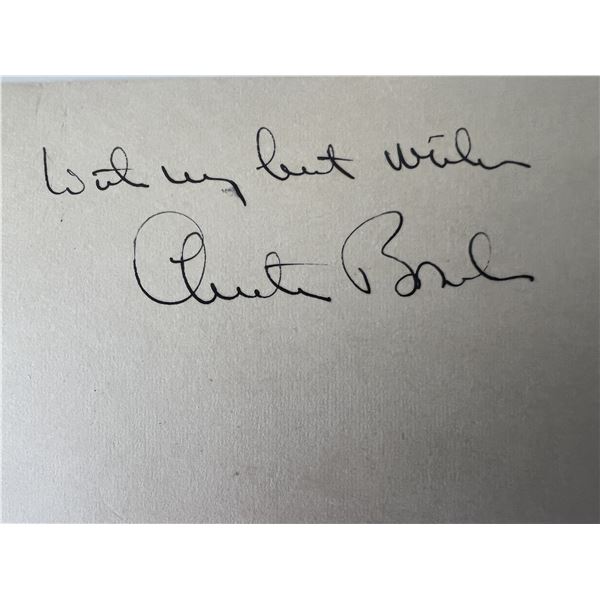 With my best wishes
Chester Bowles